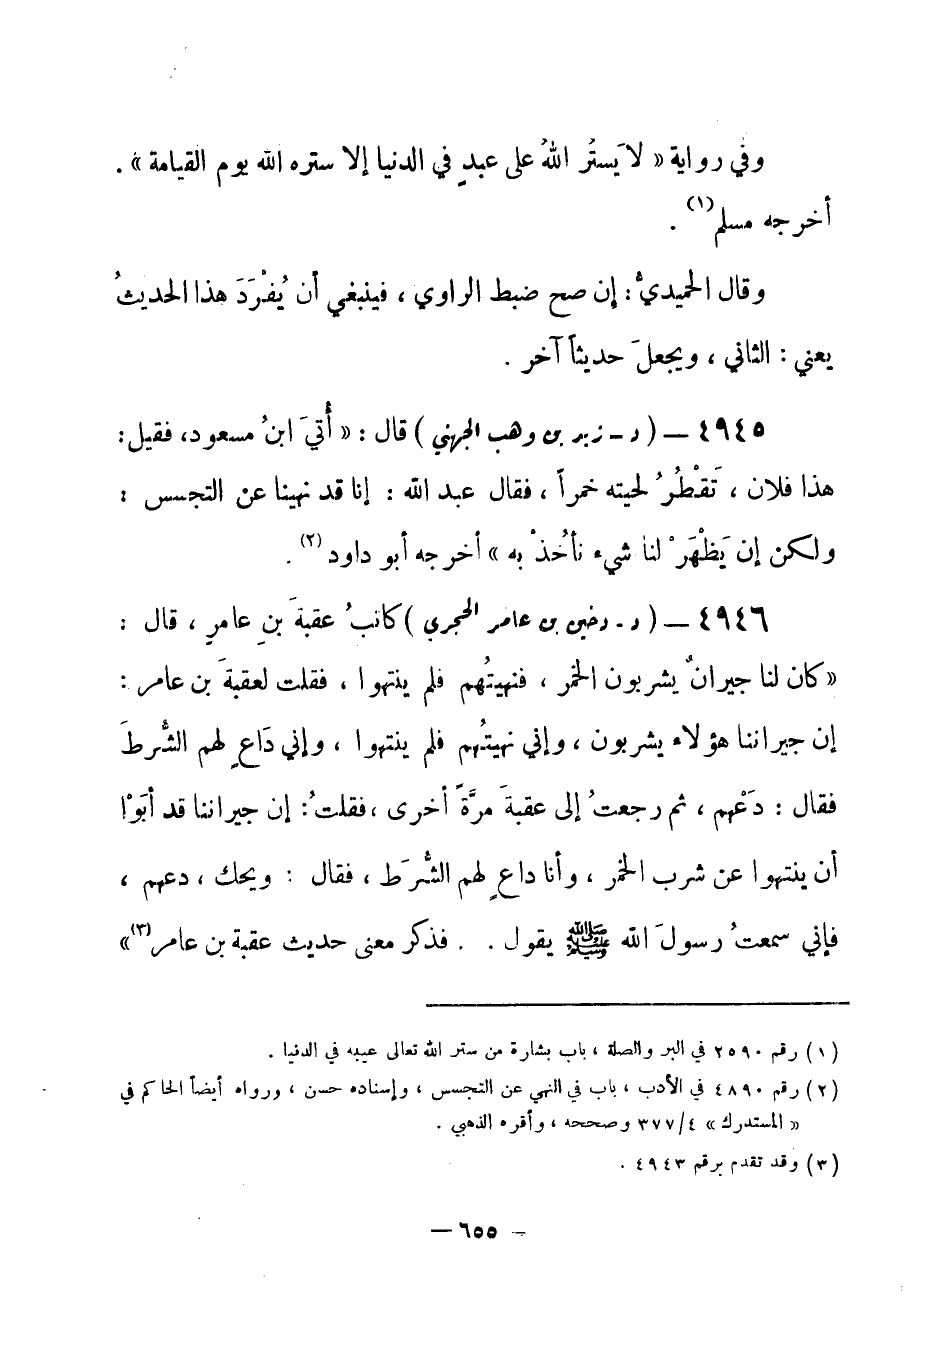 وفي رواية « لا يَستُر اللهُ على عبدٍ في الدنيا إلا ستره الله يوم القيامة » .
أخرجه مسلم (١) .
وقال الحميديُّ : إن صح ضبط الراوي ، فينبغي أن يُفْرَدَ هذا الحديثُ
يعني : الثاني ، ويجعلَ حديثاً آخر .
٤٩٤٥ — ( د - زيد بن وهب الجهني ) قال : « أُتيَ ابنُ مسعود، فقيل :
هذا فلان ، تَقْطُرُ لحيته خمراً ، فقال عبد الله : إنا قد نهينا عن التجسس :
ولكن إن يَظْهَرْ لنا شيء نأخُذْ به » أخرجه أبو داود (٢) .
٤٩٤٦ — ( د - دخين بن عامر الحجري ) كاتبُ عقبةَ بنِ عامرٍ ، قال :
« كان لنا جيرانٌ يشربون الخمر ، فنهيتُهم فلم ينتهوا ، فقلت لعقبةَ بن عامر :
إن جيراننا هؤلاء يشربون ، وإني نهيتُهم فلم ينتهوا ، وإني دَاعٍ لهم الشُّرطَ
فقال : دَعْهم ، ثم رجعتُ إلى عقبةَ مرَّةً أخرى ، فقلتُ : إن جيراننا قد أبَوْا
أن ينتهوا عن شرب الخمر ، وأنا داعٍ لهم الشُّرَط ، فقال : ويحك ، دعهم ،
فإني سمعتُ رسولَ الله ﷺ يقول . . فذكر معنى حديث عقبة بن عامر (٣) »
(١) رقم ٢٥٩٠ في البر والصلة ، باب بشارة من ستر الله تعالى عيبه في الدنيا .
(٢) رقم ٤٨٩٠ في الأدب ، باب في النهي عن التجسس ، وإسناده حسن ، ورواه أيضاً الحاكم في
« المستدرك » ٤/٣٧٧ وصححه ، وأقره الذهبي .
(٣) وقد تقدم برقم ٤٩٤٣ .
— ٦٥٥ —